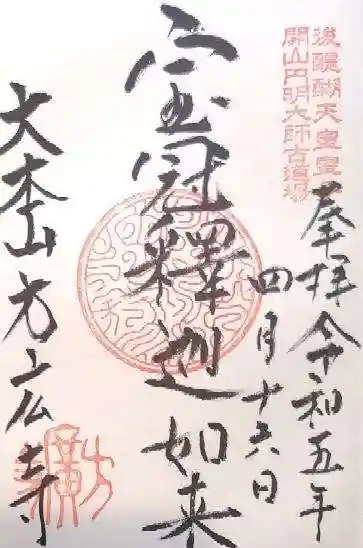 後醍醐天皇皇
開山円明大師古道場
奉拝令和五年
四月十六日
宝冠釋迦如来
大本山方广寺
方廣